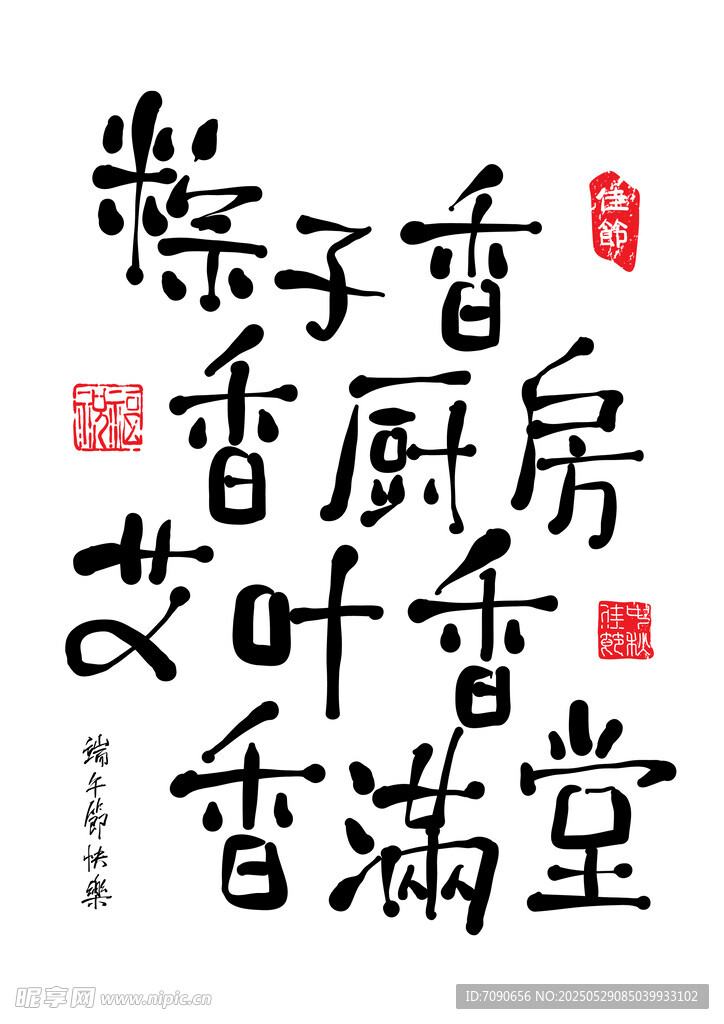 粽子香
佳節
香厨房
祝福
艾叶香
中秋
佳節
香滿堂
端午節快樂
昵享网 www.nipic.cn
ID:7090656 NO:20250529085039933102